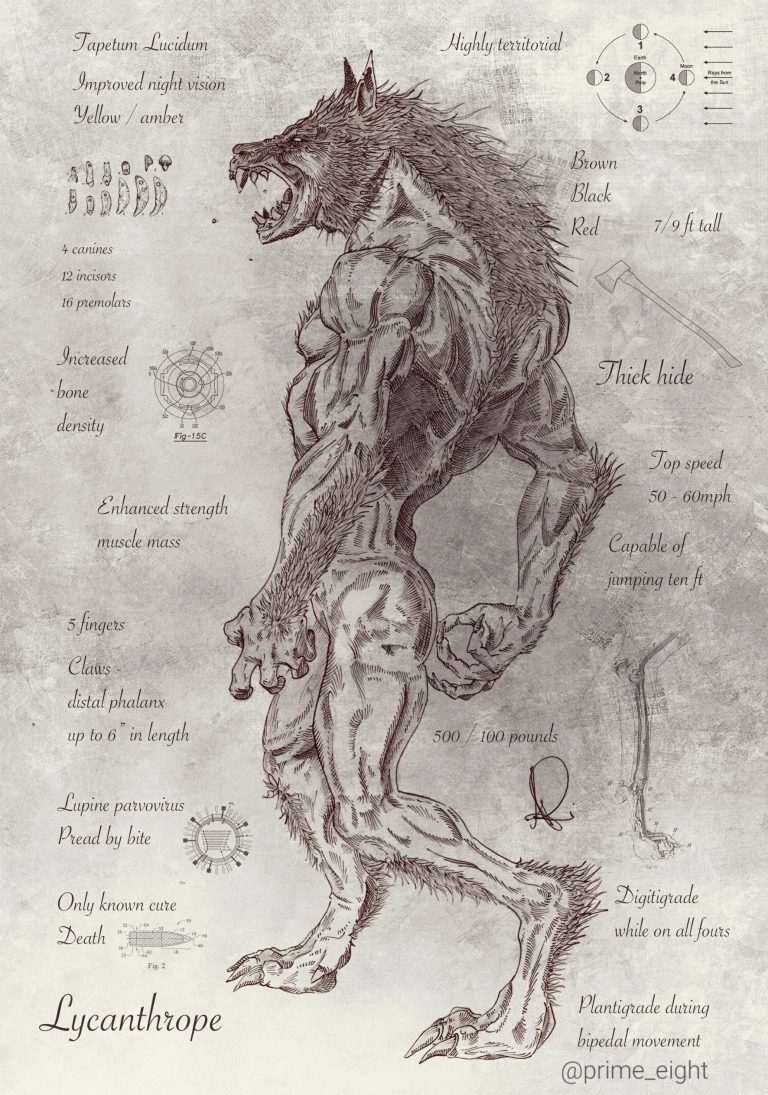 Tapetum Lucidum
Improved night vision
Yellow / amber
Highly territorial
1
Earth
2
North
Pole
4
Moon
Rays from
the Sun
3
Brown
Black
Red
7/9 ft tall
4 canines
12 incisors
16 premolars
Increased
bone
density
Fig-15C
Thick hide
Top speed
50 - 60mph
Enhanced strength
muscle mass
Capable of
jumping ten ft
5 fingers
Claws -
distal phalanx
up to 6" in length
500 / 100 pounds
Lupine parvovirus
Pread by bite
Only known cure
Death
Fig. 2
Digitigrade
while on all fours
Lycanthrope
Plantigrade during
bipedal movement
@prime_eight